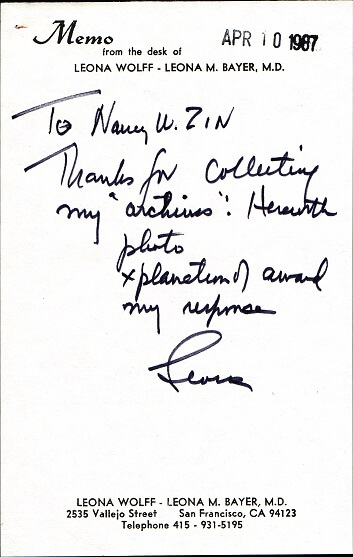 Memo
APR 10 1987
from the desk of
LEONA WOLFF - LEONA M. BAYER, M.D.
To Nancy W. ZIN
Thanks for collecting
my "archives": Herewith
photo
xplanation of award
my response
Leona
LEONA WOLFF - LEONA M. BAYER, M.D.
2535 Vallejo Street San Francisco, CA 94123
Telephone 415 - 931-5195